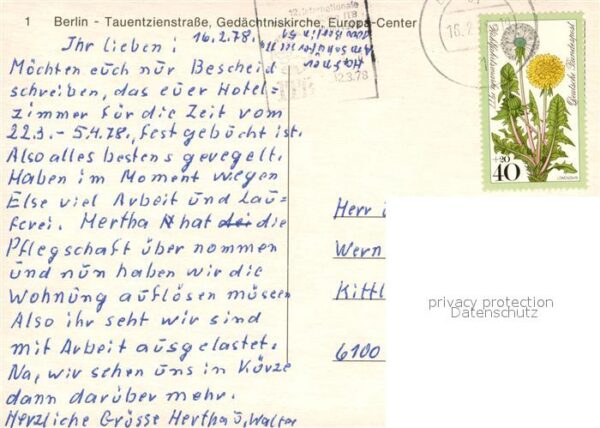 1 Berlin - Tauentzienstraße, Gedächtniskirche, Europa-Center
16.2.78.
Ihr lieben!
Möchten euch nur Bescheid
schreiben, das euer Hotel=
zimmer für die Zeit vom
22.3.-5.4.78, festgebücht ist.
Also alles bestens geregelt.
Haben im Moment wegen
Else viel Arbeit und Lau=
ferei. Hertha hat die
Pflegschaft über nommen
und nun haben wir die
Wohnung auflösen müssen
Also ihr seht wir sind
mit Arbeit ausgelastet.
Na, wir sehen uns in Kürze
dann darüber mehr.
Herzliche Grüsse Hertha u, Walter
12. Internationale
ITB
12.3.78
Hafner
16.2.
Deutsche Bundespost
+20
40
LÖWENZAHN
Herr
Wern
Kittl
6100
privacy protection
Datenschutz